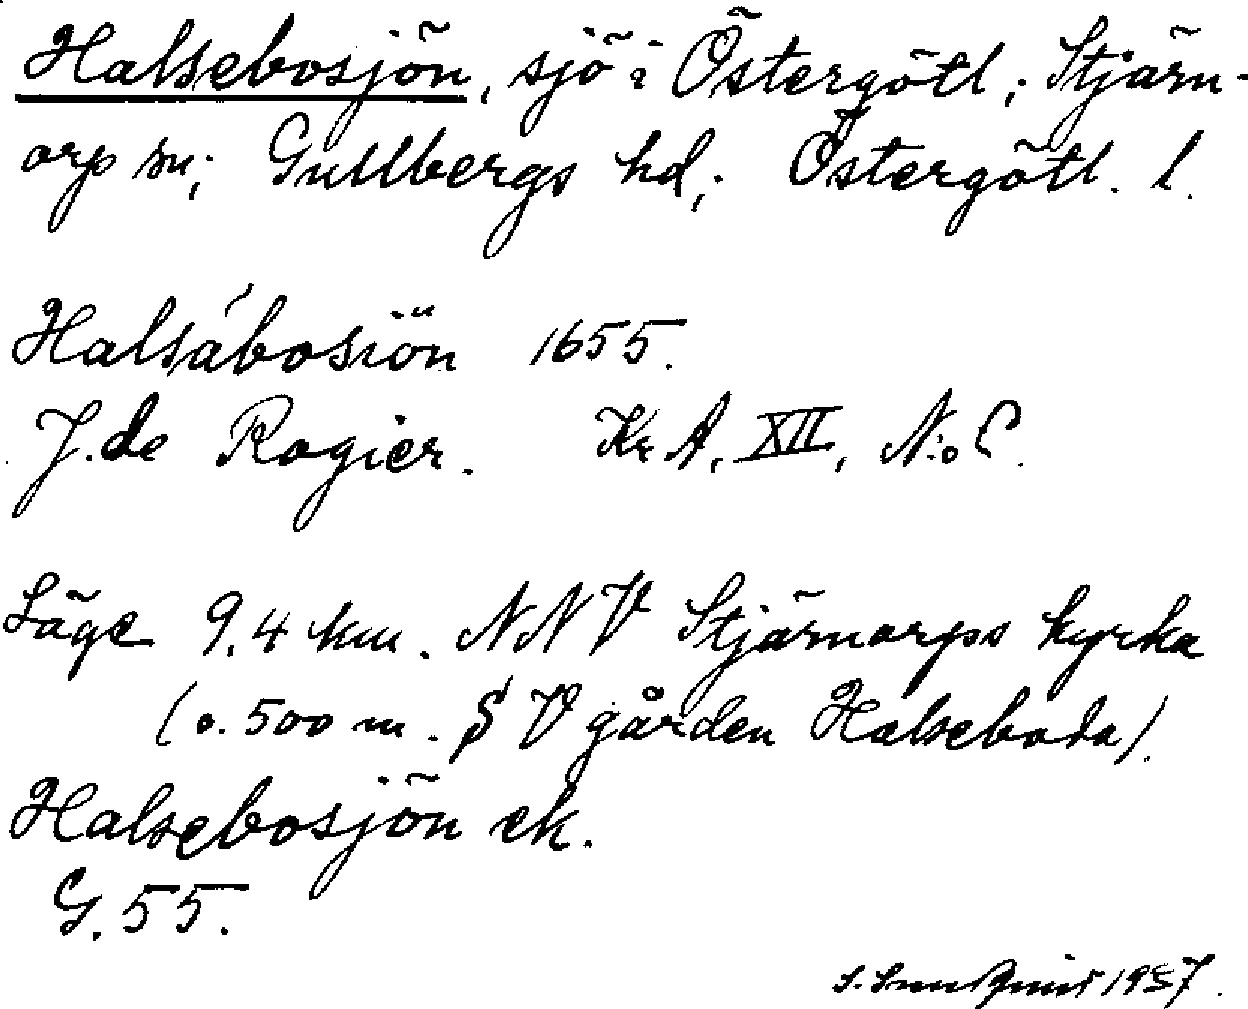 Halsebosjön, sjö i Östergötl; Stjärn-
orp sn; Gullbergs hd; Östergötl. l.
Halsábosiön 1655.
J. de Rogier. Kr A, XII, N:o C.
Läge 9.4 km. NNV Stjärnorps kyrka
(o. 500 m. SV gården Halseboda).
Halsebosjön ek.
G. 55.
S. 1957.